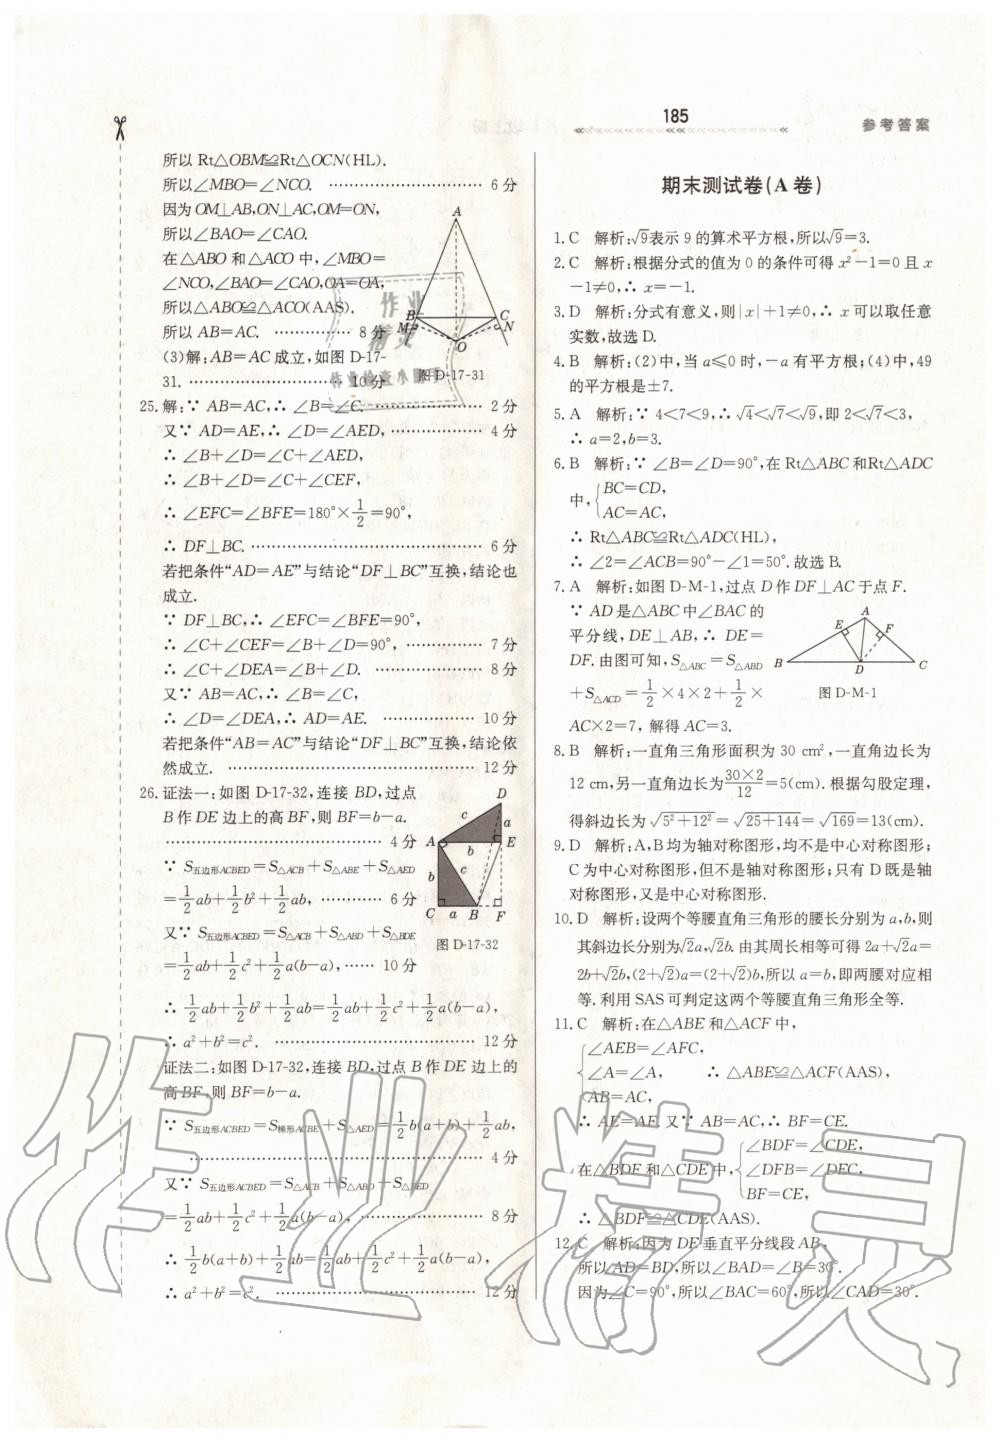 185
参考答案
所以 Rt△OBM≌Rt△OCN(HL).
所以∠MBO=∠NCO. ……………………… 6分
因为OM⊥AB,ON⊥AC,OM=ON,
所以∠BAO=∠CAO.
在△ABO 和△ACO 中,∠MBO=
∠NCO,∠BAO=∠CAO,OA=OA,
所以△ABO≌△ACO(AAS).
所以 AB=AC. …………… 8分
(3)解:AB=AC 成立,如图 D-17-
31. ……………………… 10分
A
B
C
M
N
O
图 D-17-31
25. 解:∵ AB=AC,∴ ∠B=∠C. ……………… 2分
又∵ AD=AE,∴ ∠D=∠AED, ……………… 4分
∴ ∠B+∠D=∠C+∠AED,
∴ ∠B+∠D=∠C+∠CEF,
∴ ∠EFC=∠BFE=180°×1/2=90°,
∴ DF⊥BC. ……………………………… 6分
若把条件“AD=AE”与结论“DF⊥BC”互换,结论也
成立.
∵ DF⊥BC,∴ ∠EFC=∠BFE=90°,
∴ ∠C+∠CEF=∠B+∠D=90°, ………… 7分
∴ ∠C+∠DEA=∠B+∠D. ……………… 8分
又∵ AB=AC,∴ ∠B=∠C,
∴ ∠D=∠DEA,∴ AD=AE. ……………… 10分
若把条件“AB=AC”与结论“DF⊥BC”互换,结论依
然成立. …………………………………… 12分
26. 证法一:如图 D-17-32,连接 BD,过点
B 作 DE 边上的高 BF,则 BF=b-a.
…………………………………… 4分
∵ S五边形ACBED=S△ACB+S△ABE+S△AED
=1/2ab+1/2b²+1/2ab, ………… 6分
又∵ S五边形ACBED=S△ACB+S△ABD+S△BDE
=1/2ab+1/2c²+1/2a(b-a), …… 10分
D
c
a
A
b
E
b
c
C
a
B
F
图 D-17-32
∴ 1/2ab+1/2b²+1/2ab=1/2ab+1/2c²+1/2a(b-a),
∴ a²+b²=c². ……………………………… 12分
证法二:如图 D-17-32,连接 BD,过点 B 作 DE 边上的
高 BF,则 BF=b-a.
∵ S五边形ACBED=S梯形ACBE+S△AED=1/2b(a+b)+1/2ab,
…………………………………………… 4分
又∵ S五边形ACBED=S△ACB+S△ABD+S△BED
=1/2ab+1/2c²+1/2a(b-a), …………………… 8分
∴ 1/2b(a+b)+1/2ab=1/2ab+1/2c²+1/2a(b-a),
∴ a²+b²=c². ……………………………… 12分
期末测试卷(A 卷)
1. C 解析:√9表示 9 的算术平方根,所以√9=3.
2. C 解析:根据分式的值为 0 的条件可得 x²-1=0 且 x
-1≠0,∴ x=-1.
3. D 解析:分式有意义,则|x|+1≠0,∴ x 可以取任意
实数,故选 D.
4. B 解析:(2)中,当 a≤0 时,-a 有平方根;(4)中,49
的平方根是±7.
5. A 解析:∵ 4<7<9,∴ √4<√7<√9,即 2<√7<3,
∴ a=2,b=3.
6. B 解析:∵ ∠B=∠D=90°,在 Rt△ABC 和Rt△ADC
中,{BC=CD,
AC=AC,
∴ Rt△ABC≌Rt△ADC(HL),
∴ ∠2=∠ACB=90°-∠1=50°.故选 B.
7. A 解析:如图 D-M-1,过点 D 作 DF⊥AC 于点 F.
∵ AD 是△ABC 中∠BAC 的
平分线,DE⊥AB,∴ DE=
DF. 由图可知,S△ABC=S△ABD
+S△ACD=1/2×4×2+1/2×
AC×2=7,解得 AC=3.
A
E
F
B
D
C
图 D-M-1
8. B 解析:一直角三角形面积为 30 cm²,一直角边长为
12 cm,另一直角边长为30×2/12=5(cm). 根据勾股定理,
得斜边长为√5²+12²=√25+144=√169=13(cm).
9. D 解析:A,B 均为轴对称图形,均不是中心对称图形;
C 为中心对称图形,但不是轴对称图形;只有 D 既是轴
对称图形,又是中心对称图形.
10. D 解析:设两个等腰直角三角形的腰长分别为 a,b,则
其斜边长分别为√2a,√2b. 由其周长相等可得 2a+√2a=
2b+√2b,(2+√2)a=(2+√2)b,所以 a=b,即两腰对应相
等. 利用 SAS 可判定这两个等腰直角三角形全等.
11. C 解析:在△ABE 和△ACF 中,
{∠AEB=∠AFC,
∠A=∠A, ∴ △ABE≌△ACF(AAS),
AB=AC,
∴ AE=AF. 又∵ AB=AC,∴ BF=CE.
在△BDF 和△CDE 中,{∠BDF=∠CDE,
∠DFB=∠DEC,
BF=CE,
∴ △BDF≌△CDE(AAS).
12. C 解析:因为 DE 垂直平分线段 AB,
所以 AD=BD,所以∠BAD=∠B=30°.
因为∠C=90°,所以∠BAC=60°,所以∠CAD=30°.
作业精灵